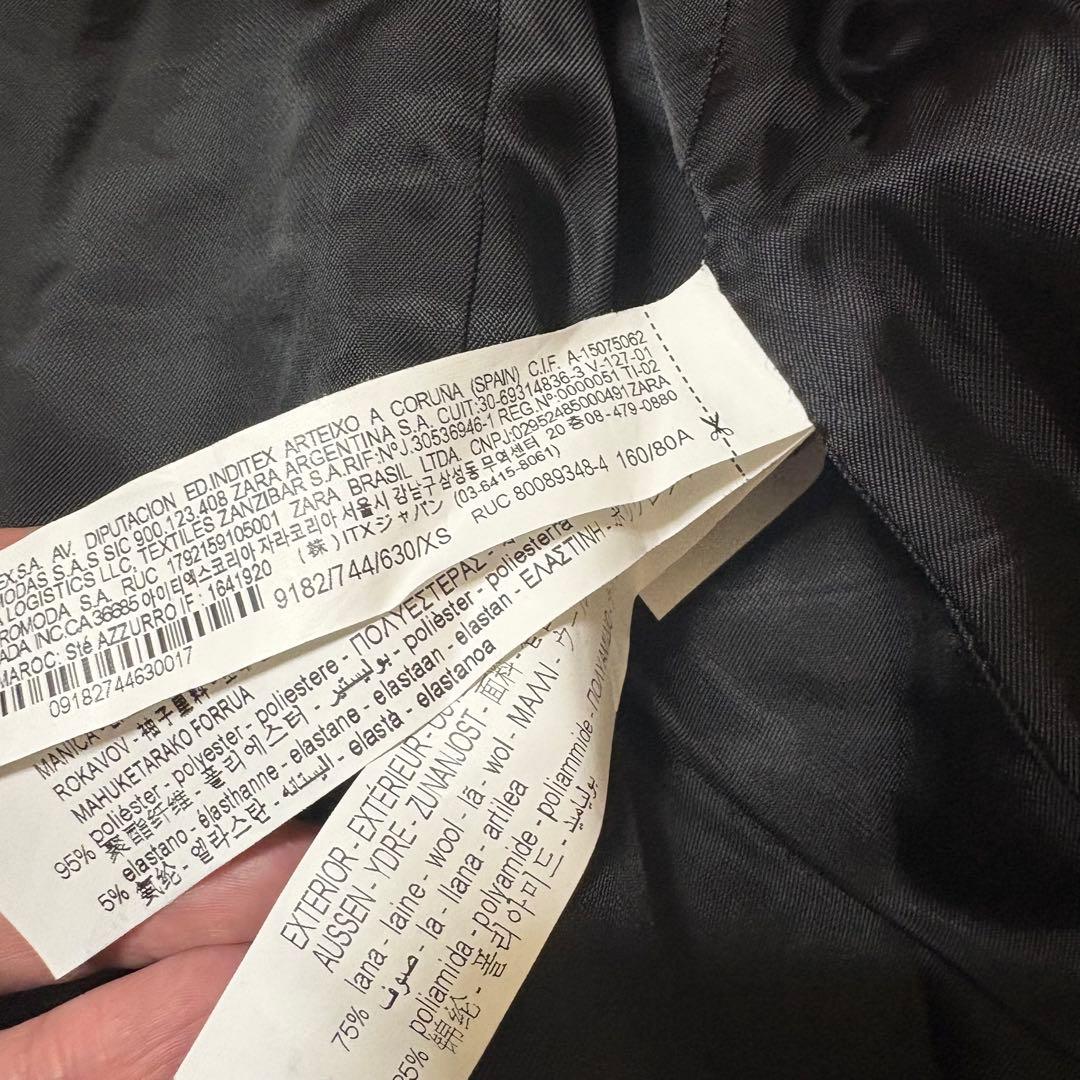 EX.SA. AV. DIPUTACION ED.INDITEX ARTEIXO A CORUÑA (SPAIN) C.I.F. A-15075062
MODAS S.A.S SIC 900,123,408 ZARA ARGENTINA S.A. CUIT:30-69314836-3 V-127-01
LOGISTICS LLC, TEXTILES ZANZIBAR S.A.RIF-Nº J.30536946-1 REG.Nº-0000051 TI-02
ROMODA S.A. RUC 1792159105001 ZARA BRASIL LTDA. CNPJ:02952485000491 ZARA
ADA INC.CA 36685 아이티엑스코리아 자라코리아 서울시 강남구 삼성동 무역센터 20 층 08-479-0880
MAROC: Sté AZZURRO IF: 1641920 (株) ITXジャパン (03-6415-8061)
RUC 80089348-4 160/80A
9182/744/630/XS
09182744630017
MANICA-
ROKAVOV - 袖子里料
MAHUKETARAKO FORRUA
95% poliéster - polyester - poliestere - ΠΟΛΥΕΣΤΕΡΑΣ
聚酯纤维 - 폴리에스터 - بوليستير - poliéster - poliesterra
5% elastano - élasthanne - elastane - elastaan - elastano - ΕΛΑΣΤΙΝΗ
氨纶 - 엘라스탄 - الايستاني - elastà - elastanoa
EXTERIOR - EXTÉRIEUR
AUSSEN - YDRE - ZUNANJOST - 面料
75% lana - laine - wool - lã - wol - ΜΑΛΛΙ
صوف - la - llana - artilea
poliamida - polyamide - poliammide
锦纶 - 폴리아미드 - بولياميد